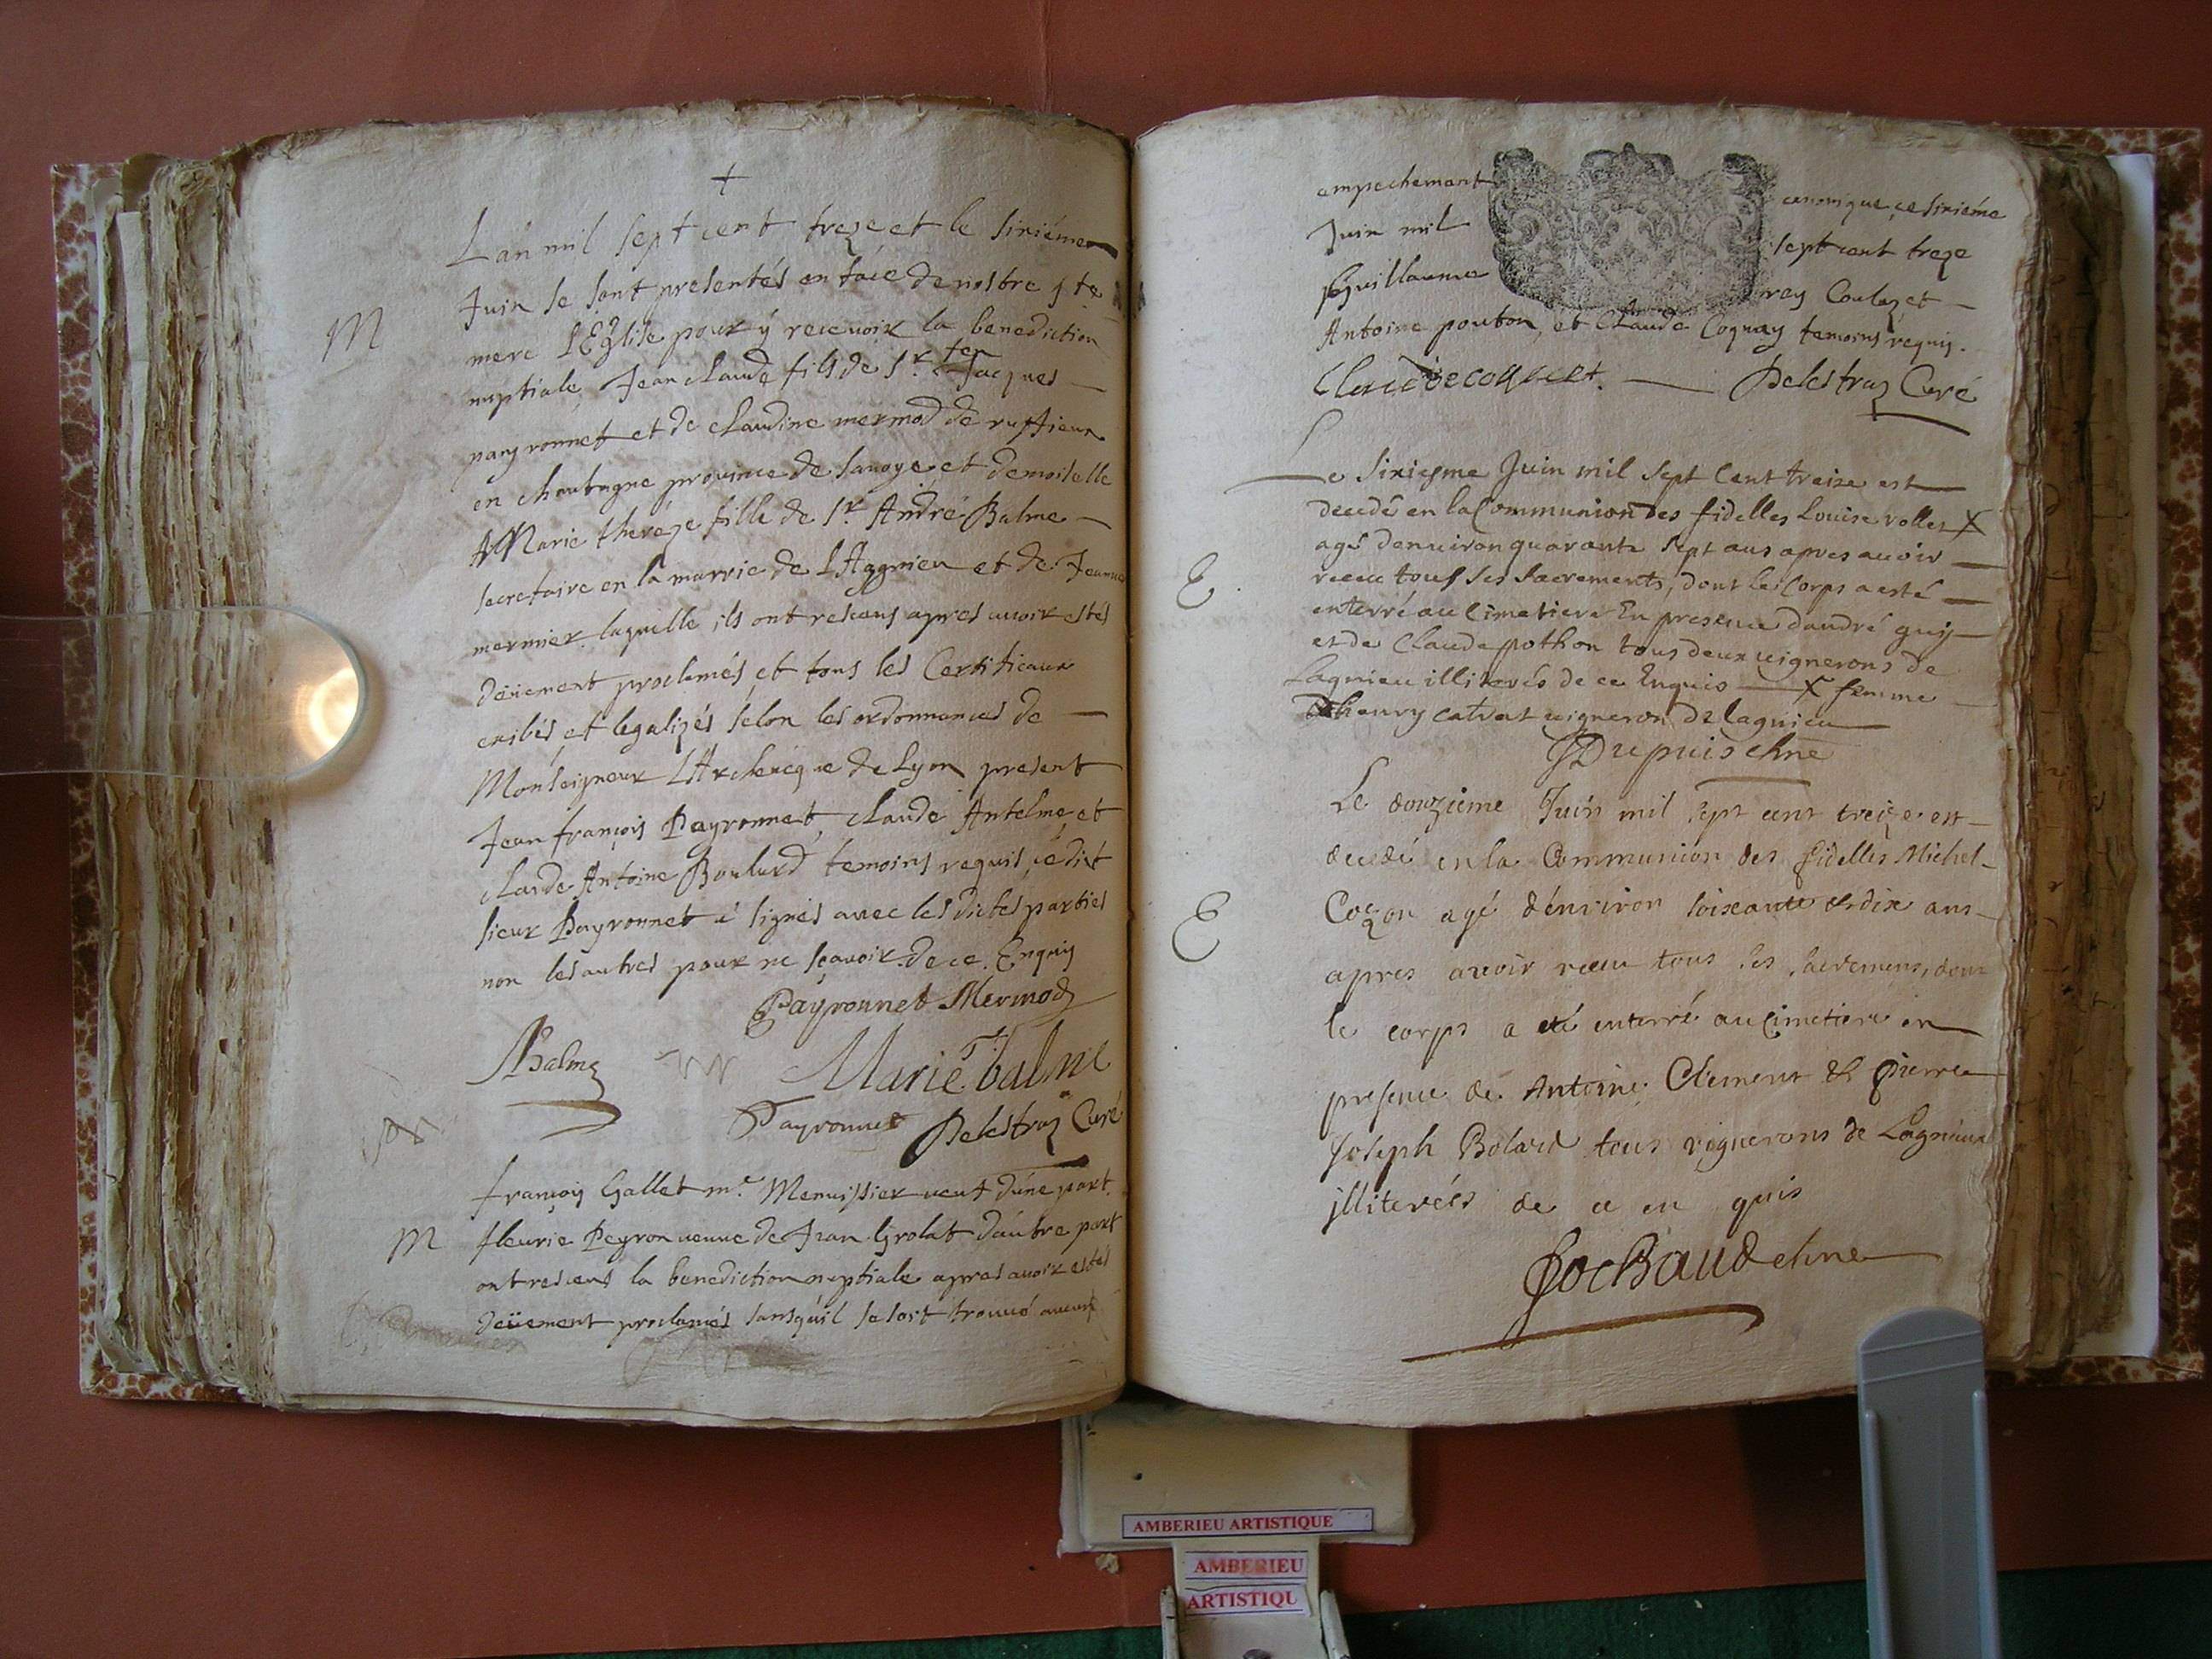 +
L'an mil sept cent treze et le sixiéme
Juin se sont presentés en face de nostre ste
M
mere l'Eglise pour ÿ recevoir la benediction
nuptiale Jean claude fils de Sr. Jacques
payronnet et de claudine mermod de ruffieux
en chautagne province de savoye et demoiselle
Marie thereze fille de Sr. André Balme
secretaire en la mairie de Lagnieu et de Jeanne
mermier laquelle ils ont resceus apres avoir estés
deüement proclamés et tous les Certificaux
exibés et legalizés selon les ordonnances de
Monseigneur L'Archevêque de Lyon present
Jean françois Payronnet, claude Antelme et
claude Antoine Boulard temoins requis, ledict
sieur Payronnet à signés avec les dictes parties
non les autres pour ne sçavoir de ce Enquis
Payronnet Mermod
Balme
Marie T. balme
Payronnet Delestraz Curé
françois Gallet me. Menuissier veuf d'une part
M
fleurie Peyron veuve de Jean Grolat d'autre part
ont resceus la benediction nuptiale apres avoir estés
deüement proclamés sans qu'il se soit trouvé aucun
empechemant canonique ce sixiéme
Juin mil sept cent treze
guillaume rey Coulaz et
Antoine pouton, et Claude Coquay temoins requis.
Claude coquaet. Delestraz Curé
Le sixiesme Juin mil sept Cent treize est
decedé en la Communion des fidelles Louise rollet X
agé denuiron quarante sept ans apres auoir
E
receu tous ses sacrements, dont le Corps a esté
enterré au Cimetiere En presence dandré guy
et de Claude pothon tous deux uignerons de
Lagnieu illiterés de ce Enquis X femme
dhenry catrat uigneron de lagnieu
Dupuis chne
Le douzieme Juin mil sept cent treize est
decedé en la Communion des fidelles Michel
E
Cozon agé d'environ soixante et dix ans
apres avoir receu tous ses sacremens, dont
le corps a eté enterré au cimetiere en
presence de Antoine Clement & pierre
Joseph Bolard tous vignerons de Lagnieux
illiterés de ce en quis
Baud chne
AMBERIEU ARTISTIQUE
AMBERIEU
ARTISTIQU